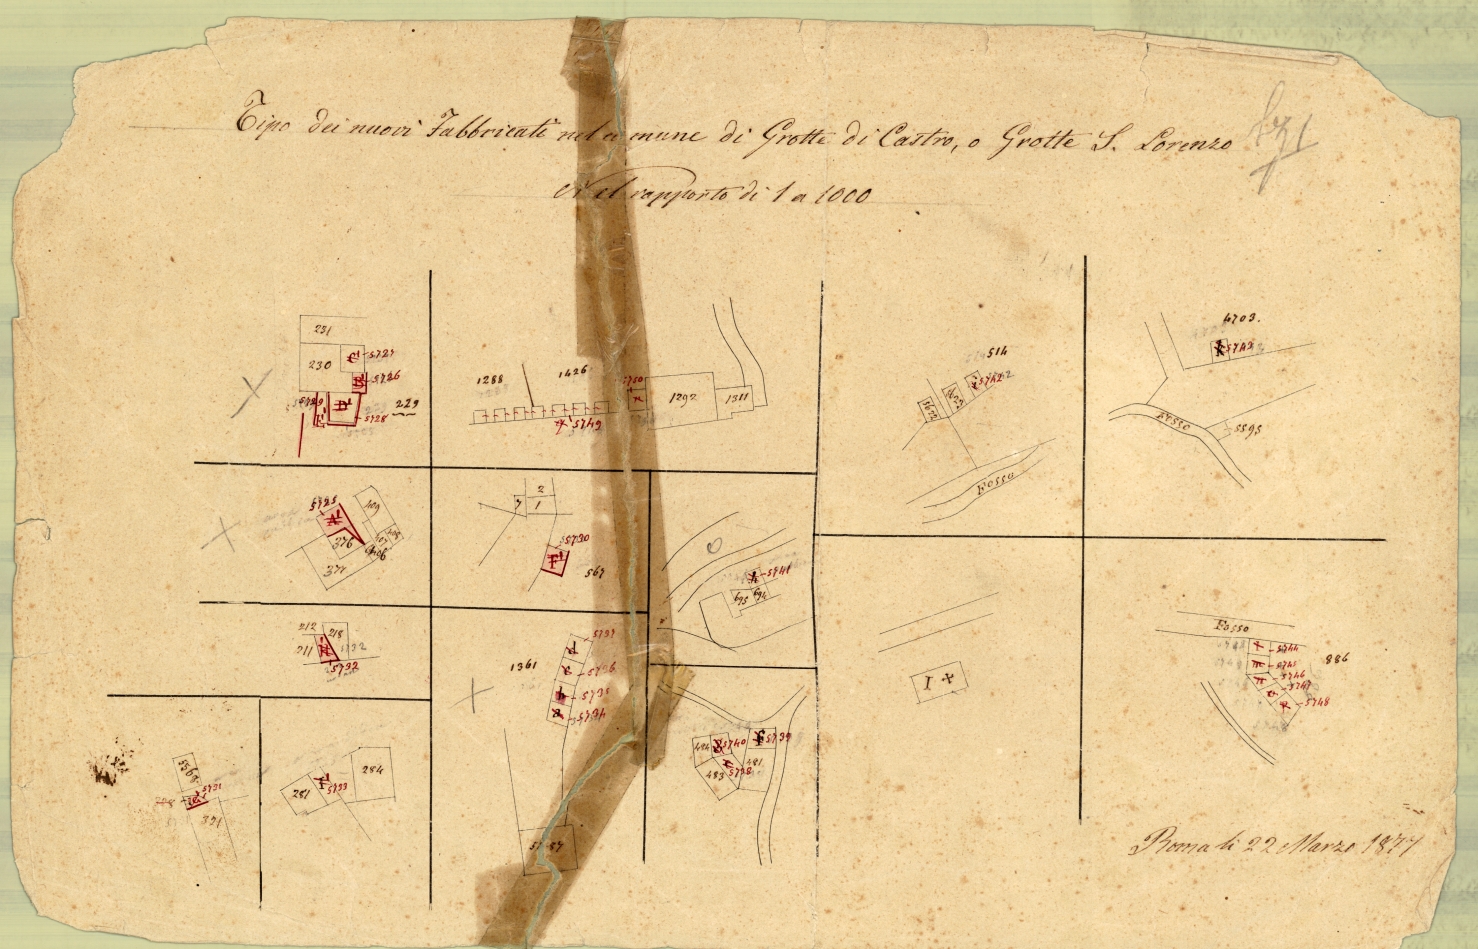 Tipo dei nuovi Fabbricati nel comune di Grotte di Castro, o Grotte S. Lorenzo
Nel rapporto di 1 a 1000
231
230
5727
5726
5729
5728
229
1288
1426
5750
5749
1292
1311
514
5742
4703.
5743
Fosso
5595
Fosso
5725
409
376
377
2
1
5730
567
5741
695
694
212
218
211
5732
1361
5737
5736
5735
5734
Fosso
5744
5745
5746
5747
5748
886
I
5740
5739
5738
483
481
5731
371
281
5733
284
Roma li 22 Marzo 1877